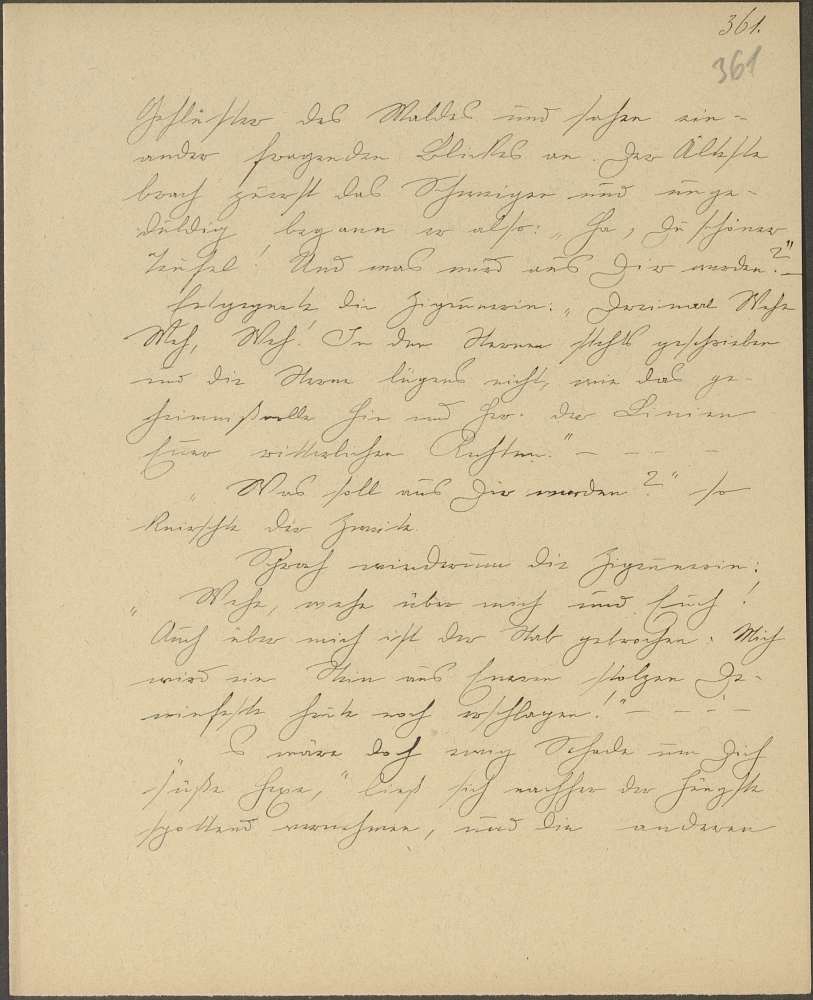 361.
361
Geflüster des Waldes und sahen ein-
ander fragenden Blickes an. Der Älteste
brach zuerst das Schweigen und unge-
duldig begann er also: „Ha, Du schöner
Teufel! Und was wird aus Dir werden?" –
Entgegnete die Zigeunerin: „Dreimal Wehe
Weh, Weh! In den Sternen stehts geschrieben
und die Sterne lügens nicht, wie das ge-
heimnißvolle Hin und Her der Linien
Euer ritterlichen Rechten." – – – –
„Was soll aus Dir werden?" so
knirschte der Zweite.
Sprach wiederum die Zigeunerin:
„Wehe, wehe über mich und Euch!
Auch über mich ist der Stab gebrochen: Mich
wird ein Stein aus Euren stolzen
heute noch erschlagen!" – – – –
„'s wäre doch ewig Schade um Dich
süße Hexe," ließ sich nachher der Jüngste
spottend vernehmen, und die anderen